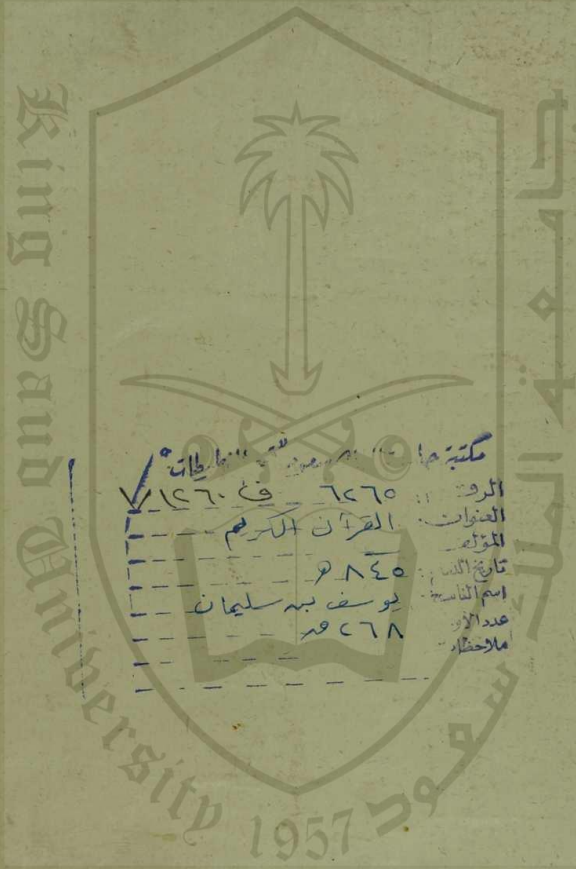 King Saud University
جامعة الملك سعود
1957
مكتبة جامعة الملك سعود قسم المخطوطات
الرقم: ٦٢٦٥ ف ١٢٦٠/٧
العنوان: القرآن الكريم
المؤلف
تاريخ النسخ: ٨٤٥ هـ
اسم الناسخ: يوسف بن سليمان
عدد الأوراق: ٢٦٨ ور
ملاحظات